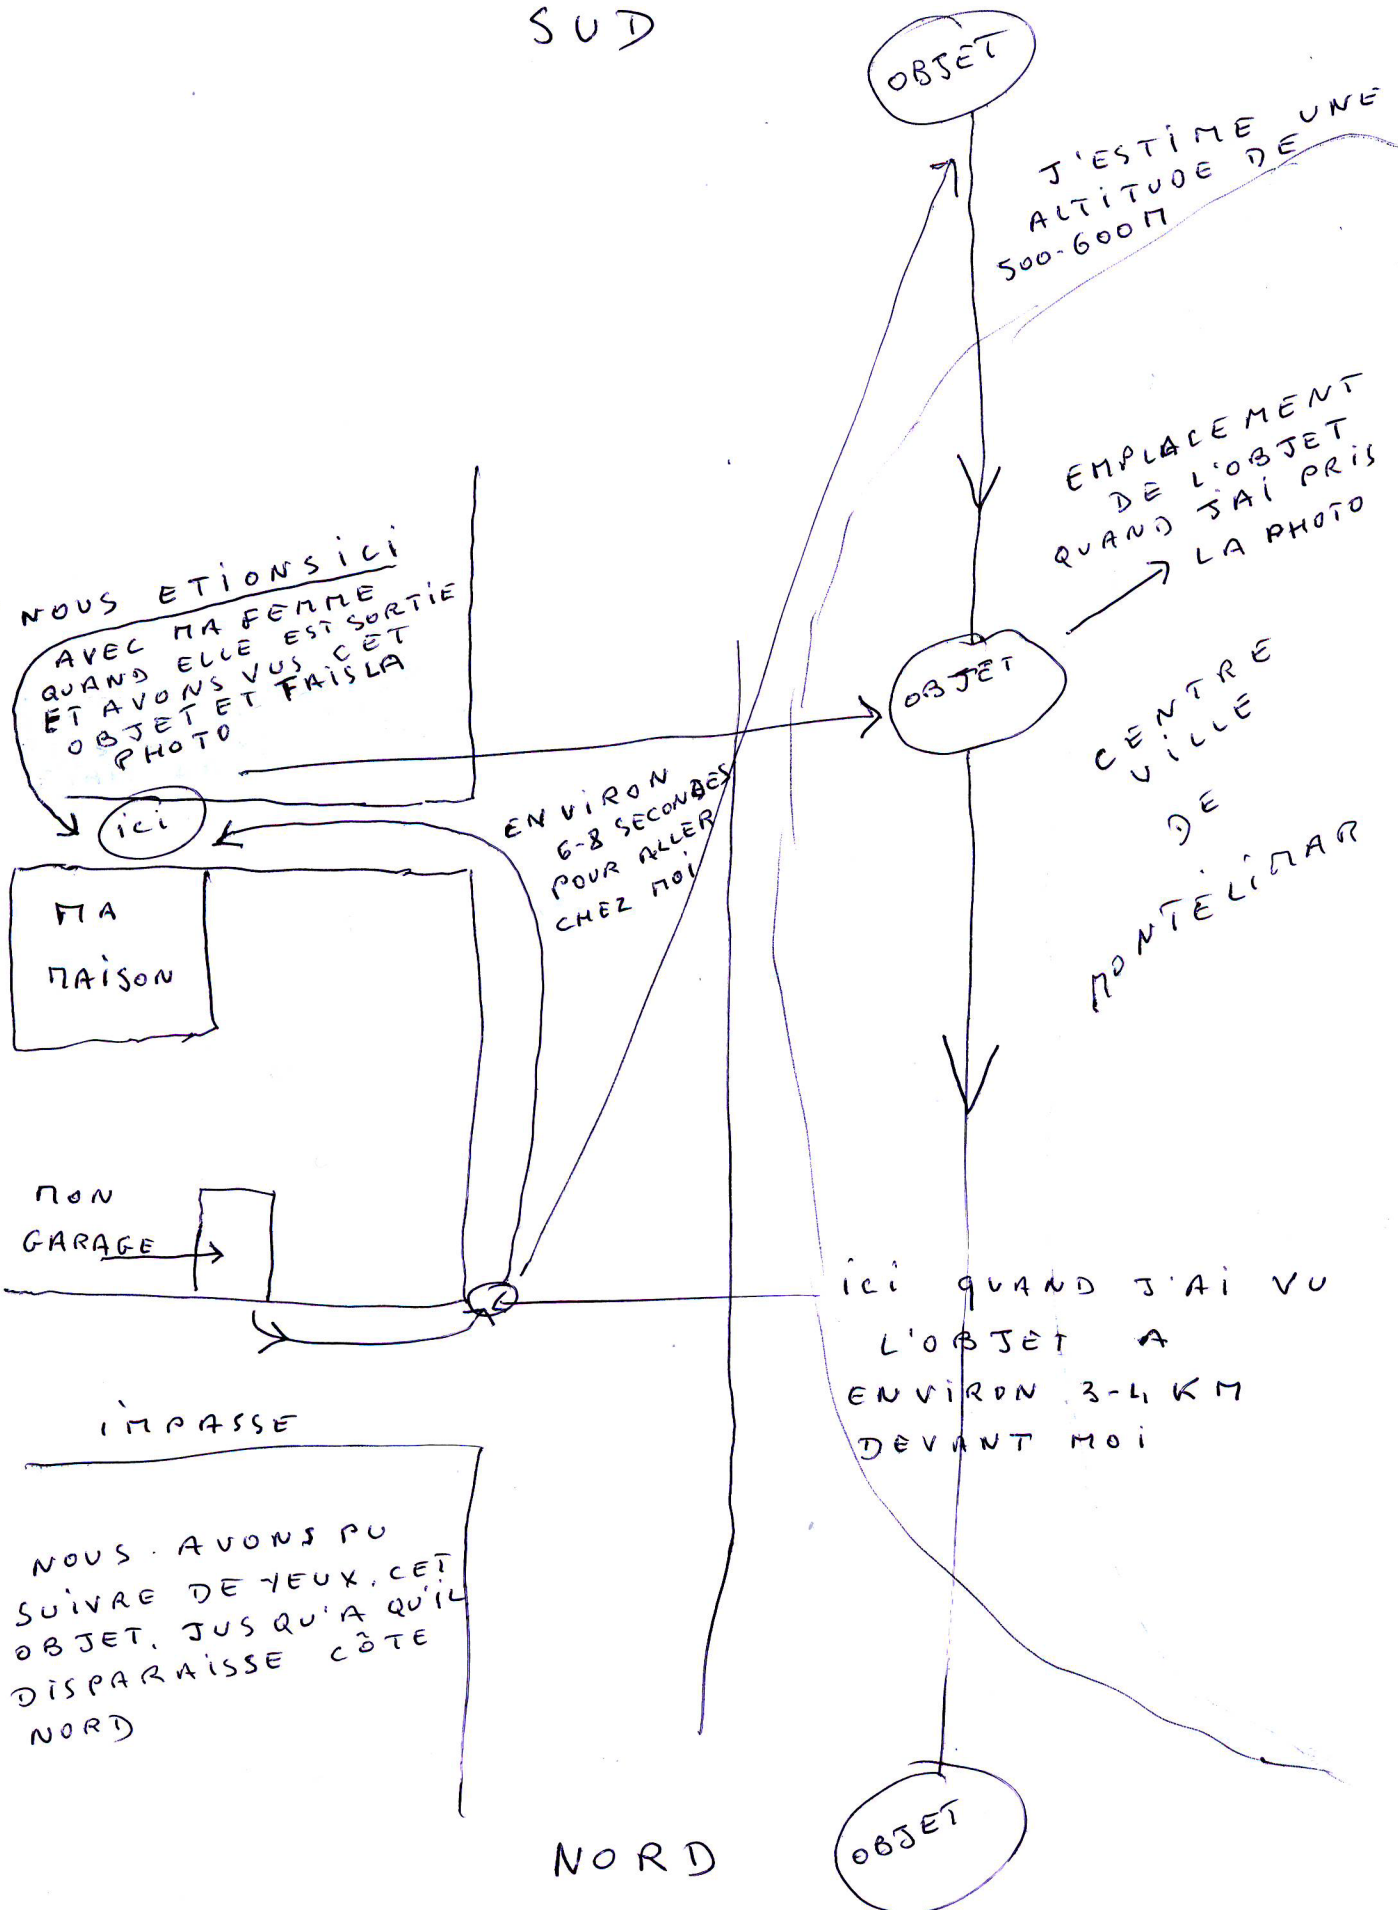 SUD
OBJET
J'ESTIME UNE
ALTITUDE DE
500-600M
EMPLACEMENT
DE L'OBJET
QUAND J'AI PRIS
LA PHOTO
NOUS ETIONS ICI
AVEC MA FEMME
QUAND ELLE EST SORTIE
ET AVONS VUS CET
OBJET ET FAIS LA
PHOTO
OBJET
CENTRE
VILLE
DE
MONTELIMAR
ici
ENVIRON
6-8 SECONDES
POUR ALLER
CHEZ MOI
MA
MAISON
MON
GARAGE
ICI QUAND J'AI VU
L'OBJET A
ENVIRON 3-4 KM
DEVANT MOI
IMPASSE
NOUS. AVONS PU
SUIVRE DE YEUX. CET
OBJET. JUSQU'A QU'IL
DISPARAISSE CÔTE
NORD
NORD
OBJET